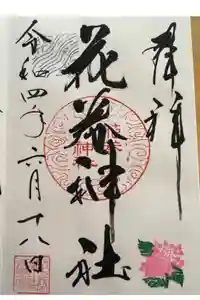 奉拝
花巻神社
令和四年六月十八日